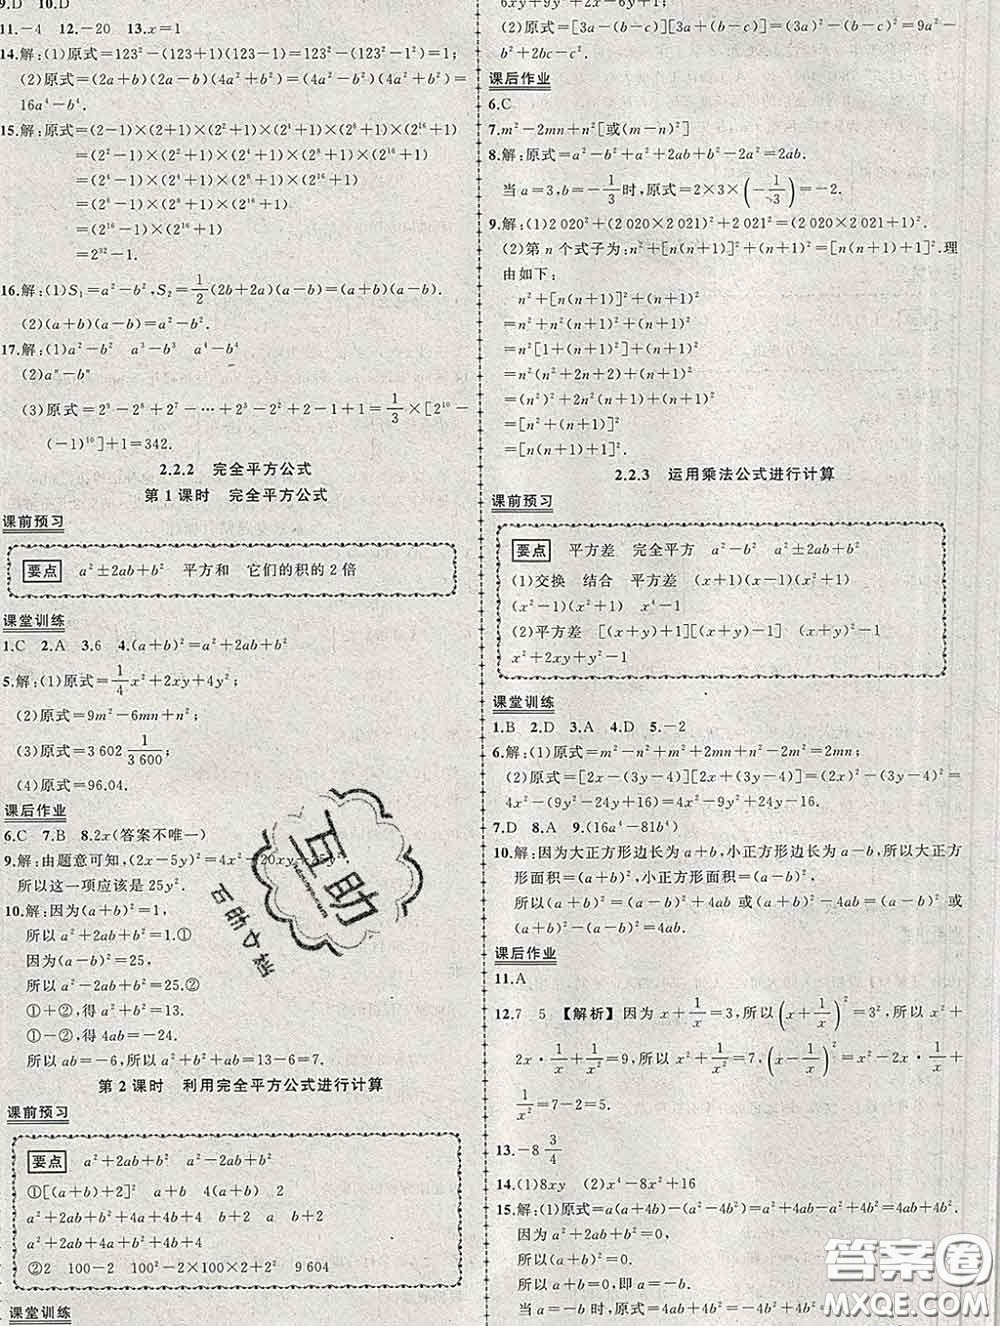 9.D 10.D
11.-4 12.-20 13.x=1
14.解:(1)原式=123²-(123+1)(123-1)=123²-(123²-1²)=1;
(2)原式=(2a+b)(2a-b)(4a²+b²)=(4a²-b²)(4a²+b²)=
16a⁴-b⁴.
15.解:原式=(2-1)×(2+1)×(2²+1)×(2⁴+1)×(2⁸+1)×(2¹⁶+1)
=(2²-1)×(2²+1)×(2⁴+1)×(2⁸+1)×(2¹⁶+1)
=(2⁴-1)×(2⁴+1)×(2⁸+1)×(2¹⁶+1)
=(2⁸-1)×(2⁸+1)×(2¹⁶+1)
=(2¹⁶-1)×(2¹⁶+1)
=2³²-1.
16.解:(1)S₁=a²-b²,S₂=1/2(2b+2a)(a-b)=(a+b)(a-b).
(2)(a+b)(a-b)=a²-b².
17.解:(1)a²-b² a³-b³ a⁴-b⁴
(2)aⁿ-bⁿ
(3)原式=2⁹-2⁸+2⁷-…+2³-2²+2-1+1=1/3×[2¹⁰-
(-1)¹⁰]+1=342.
2.2.2 完全平方公式
第1课时 完全平方公式
课前预习
要点 a²±2ab+b² 平方和 它们的积的2倍
课堂训练
1.C 2.A 3.6 4.(a+b)²=a²+2ab+b²
5.解:(1)原式=1/4x²+2xy+4y²;
(2)原式=9m²-6mn+n²;
(3)原式=3 602 1/3 600;
(4)原式=96.04.
课后作业
6.C 7.B 8.2x(答案不唯一)
9.解:由题意可知,(2x-5y)²=4x²-20xy+25y²
所以这一项应该是25y².
10.解:因为(a+b)²=1,
所以a²+2ab+b²=1.①
因为(a-b)²=25,
所以a²-2ab+b²=25.②
①+②,得a²+b²=13.
①-②,得4ab=-24.
所以ab=-6,所以a²+b²+ab=13-6=7.
第2课时 利用完全平方公式进行计算
课前预习
要点 a²+2ab+b² a²-2ab+b²
①[(a+b)+2]² a+b 4(a+b) 2
a²+2ab+b²+4a+4b+4 b+2 a b+2
a²+2ab+4a+b²+4b+4
②2 100-2 100²-2×100×2+2² 9 604
课堂训练
6xy+9y².
(2)原式=[3a-(b-c)][3a+(b-c)]=(3a)²-(b-c)²=9a²-
b²+2bc-c².
课后作业
6.C
7.m²-2mn+n²[或(m-n)²]
8.解:原式=a²-b²+a²+2ab+b²-2a²=2ab.
当a=3,b=-1/3时,原式=2×3×(-1/3)=-2.
9.解:(1)2 020²+(2 020×2 021)²+2 021²=(2 020×2 021+1)².
(2)第n个式子为:n²+[n(n+1)]²+(n+1)²=[n(n+1)+1]².理
由如下:
n²+[n(n+1)]²+(n+1)²
=[n(n+1)]²+n²+(n+1)²
=n²[1+(n+1)²]+(n+1)²
=n²(n²+2n+2)+(n+1)²
=(n²)²+2n²(n+1)+(n+1)²
=[n²+(n+1)]²
=[n(n+1)+1]².
2.2.3 运用乘法公式进行计算
课前预习
要点 平方差 完全平方 a²-b² a²±2ab+b²
(1)交换 结合 平方差 (x+1)(x-1)(x²+1)
(x²-1)(x²+1) x⁴-1
(2)平方差 [(x+y)+1][(x+y)-1] (x+y)²-1
x²+2xy+y²-1
课堂训练
1.B 2.D 3.A 4.D 5.-2
6.解:(1)原式=m²-n²+m²+2mn+n²-2m²=2mn;
(2)原式=[2x-(3y-4)][2x+(3y-4)]=(2x)²-(3y-4)²=
4x²-(9y²-24y+16)=4x²-9y²+24y-16.
7.D 8.A 9.(16a⁴-81b⁴)
10.解:因为大正方形边长为a+b,小正方形边长为a-b,所以大正方
形面积=(a+b)²,小正方形面积=(a-b)².
所以(a+b)²=(a-b)²+4ab或(a-b)²=(a+b)²-4ab或
(a+b)²-(a-b)²=4ab.
课后作业
11.A
12.7 5 【解析】因为x+1/x=3,所以(x+1/x)²=3²,所以x²+
2x·1/x+1/x²=9,所以x²+1/x²=7,(x-1/x)²=x²-2x·1/x+
1/x²=7-2=5.
13.-8 3/4
14.(1)8xy (2)x⁴-8x²+16
15.解:(1)原式=a(a+4b)-(a²-4b²)=a²+4ab-a²+4b²=4ab+4b².
因为a²+2ab+b²=0,
所以(a+b)²=0.
所以a+b=0,即a=-b.
当a=-b时,原式=4ab+4b²=-4b²+4b²=0.
互助
百助文档
答案圈
MXQE.COM